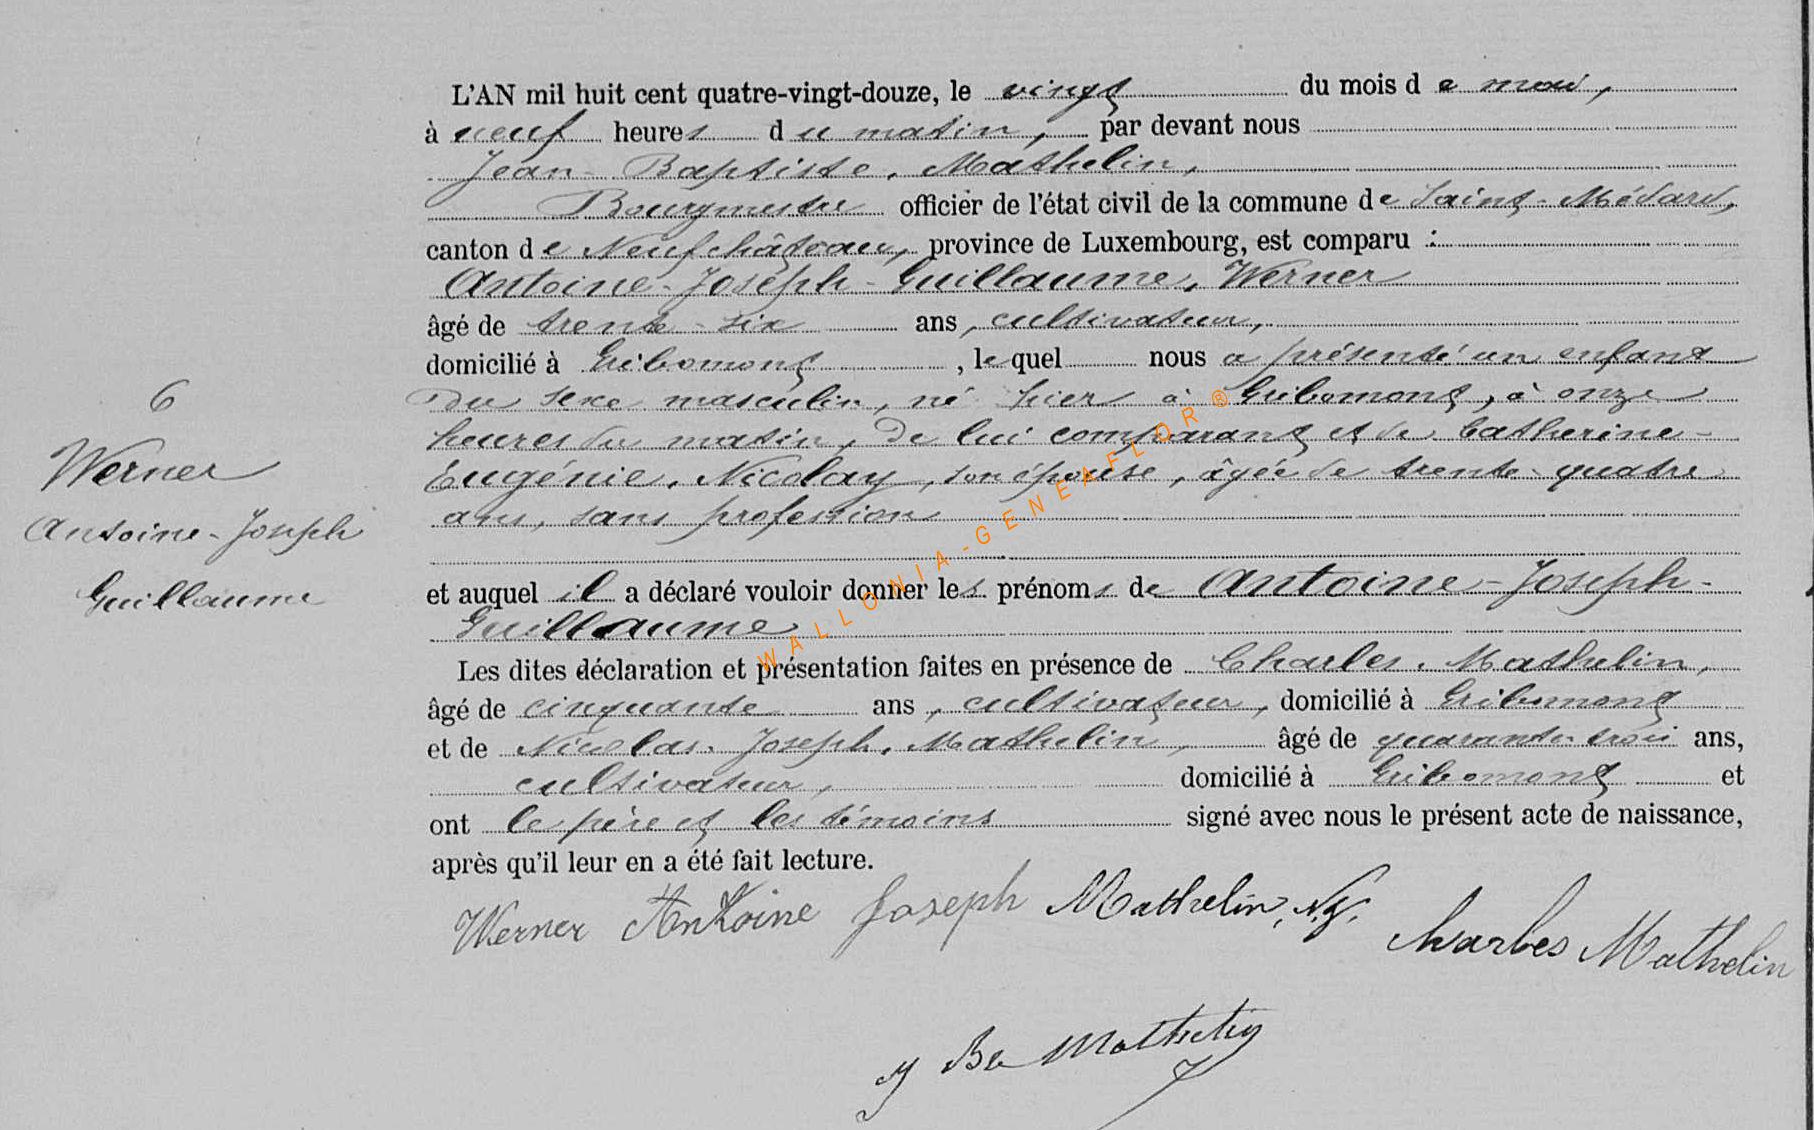 L'AN mil huit cent quatre-vingt-douze, le vingt du mois de mai,
à neuf heures du matin, par devant nous
Jean-Baptiste, Mathelin,
Bourgmestre officier de l'état civil de la commune de Saint-Médard,
canton de Neufchâteau, province de Luxembourg, est comparu :
Antoine-Joseph-Guillaume, Werner
âgé de trente-six ans, cultivateur,
domicilié à Gribomont, lequel nous a présenté un enfant
du sexe masculin, né hier à Gribomont, à onze
heures du matin, de lui comparant et de Catherine-
Eugénie, Nicolay, son épouse, âgée de trente-quatre
ans, sans profession
et auquel il a déclaré vouloir donner les prénoms de Antoine-Joseph-
Guillaume
Les dites déclaration et présentation faites en présence de Charles, Mathelin,
âgé de cinquante ans, cultivateur, domicilié à Gribomont
et de Nicolas-Joseph, Mathelin, âgé de quarante-trois ans,
cultivateur, domicilié à Gribomont et
ont le père et les témoins signé avec nous le présent acte de naissance,
après qu'il leur en a été fait lecture.
6
Werner
Antoine-Joseph
Guillaume
Werner Antoine Joseph Mathelin, N.J. Charles Mathelin
J Bte Mathelin
WALLONIA-GENEAFLOR®